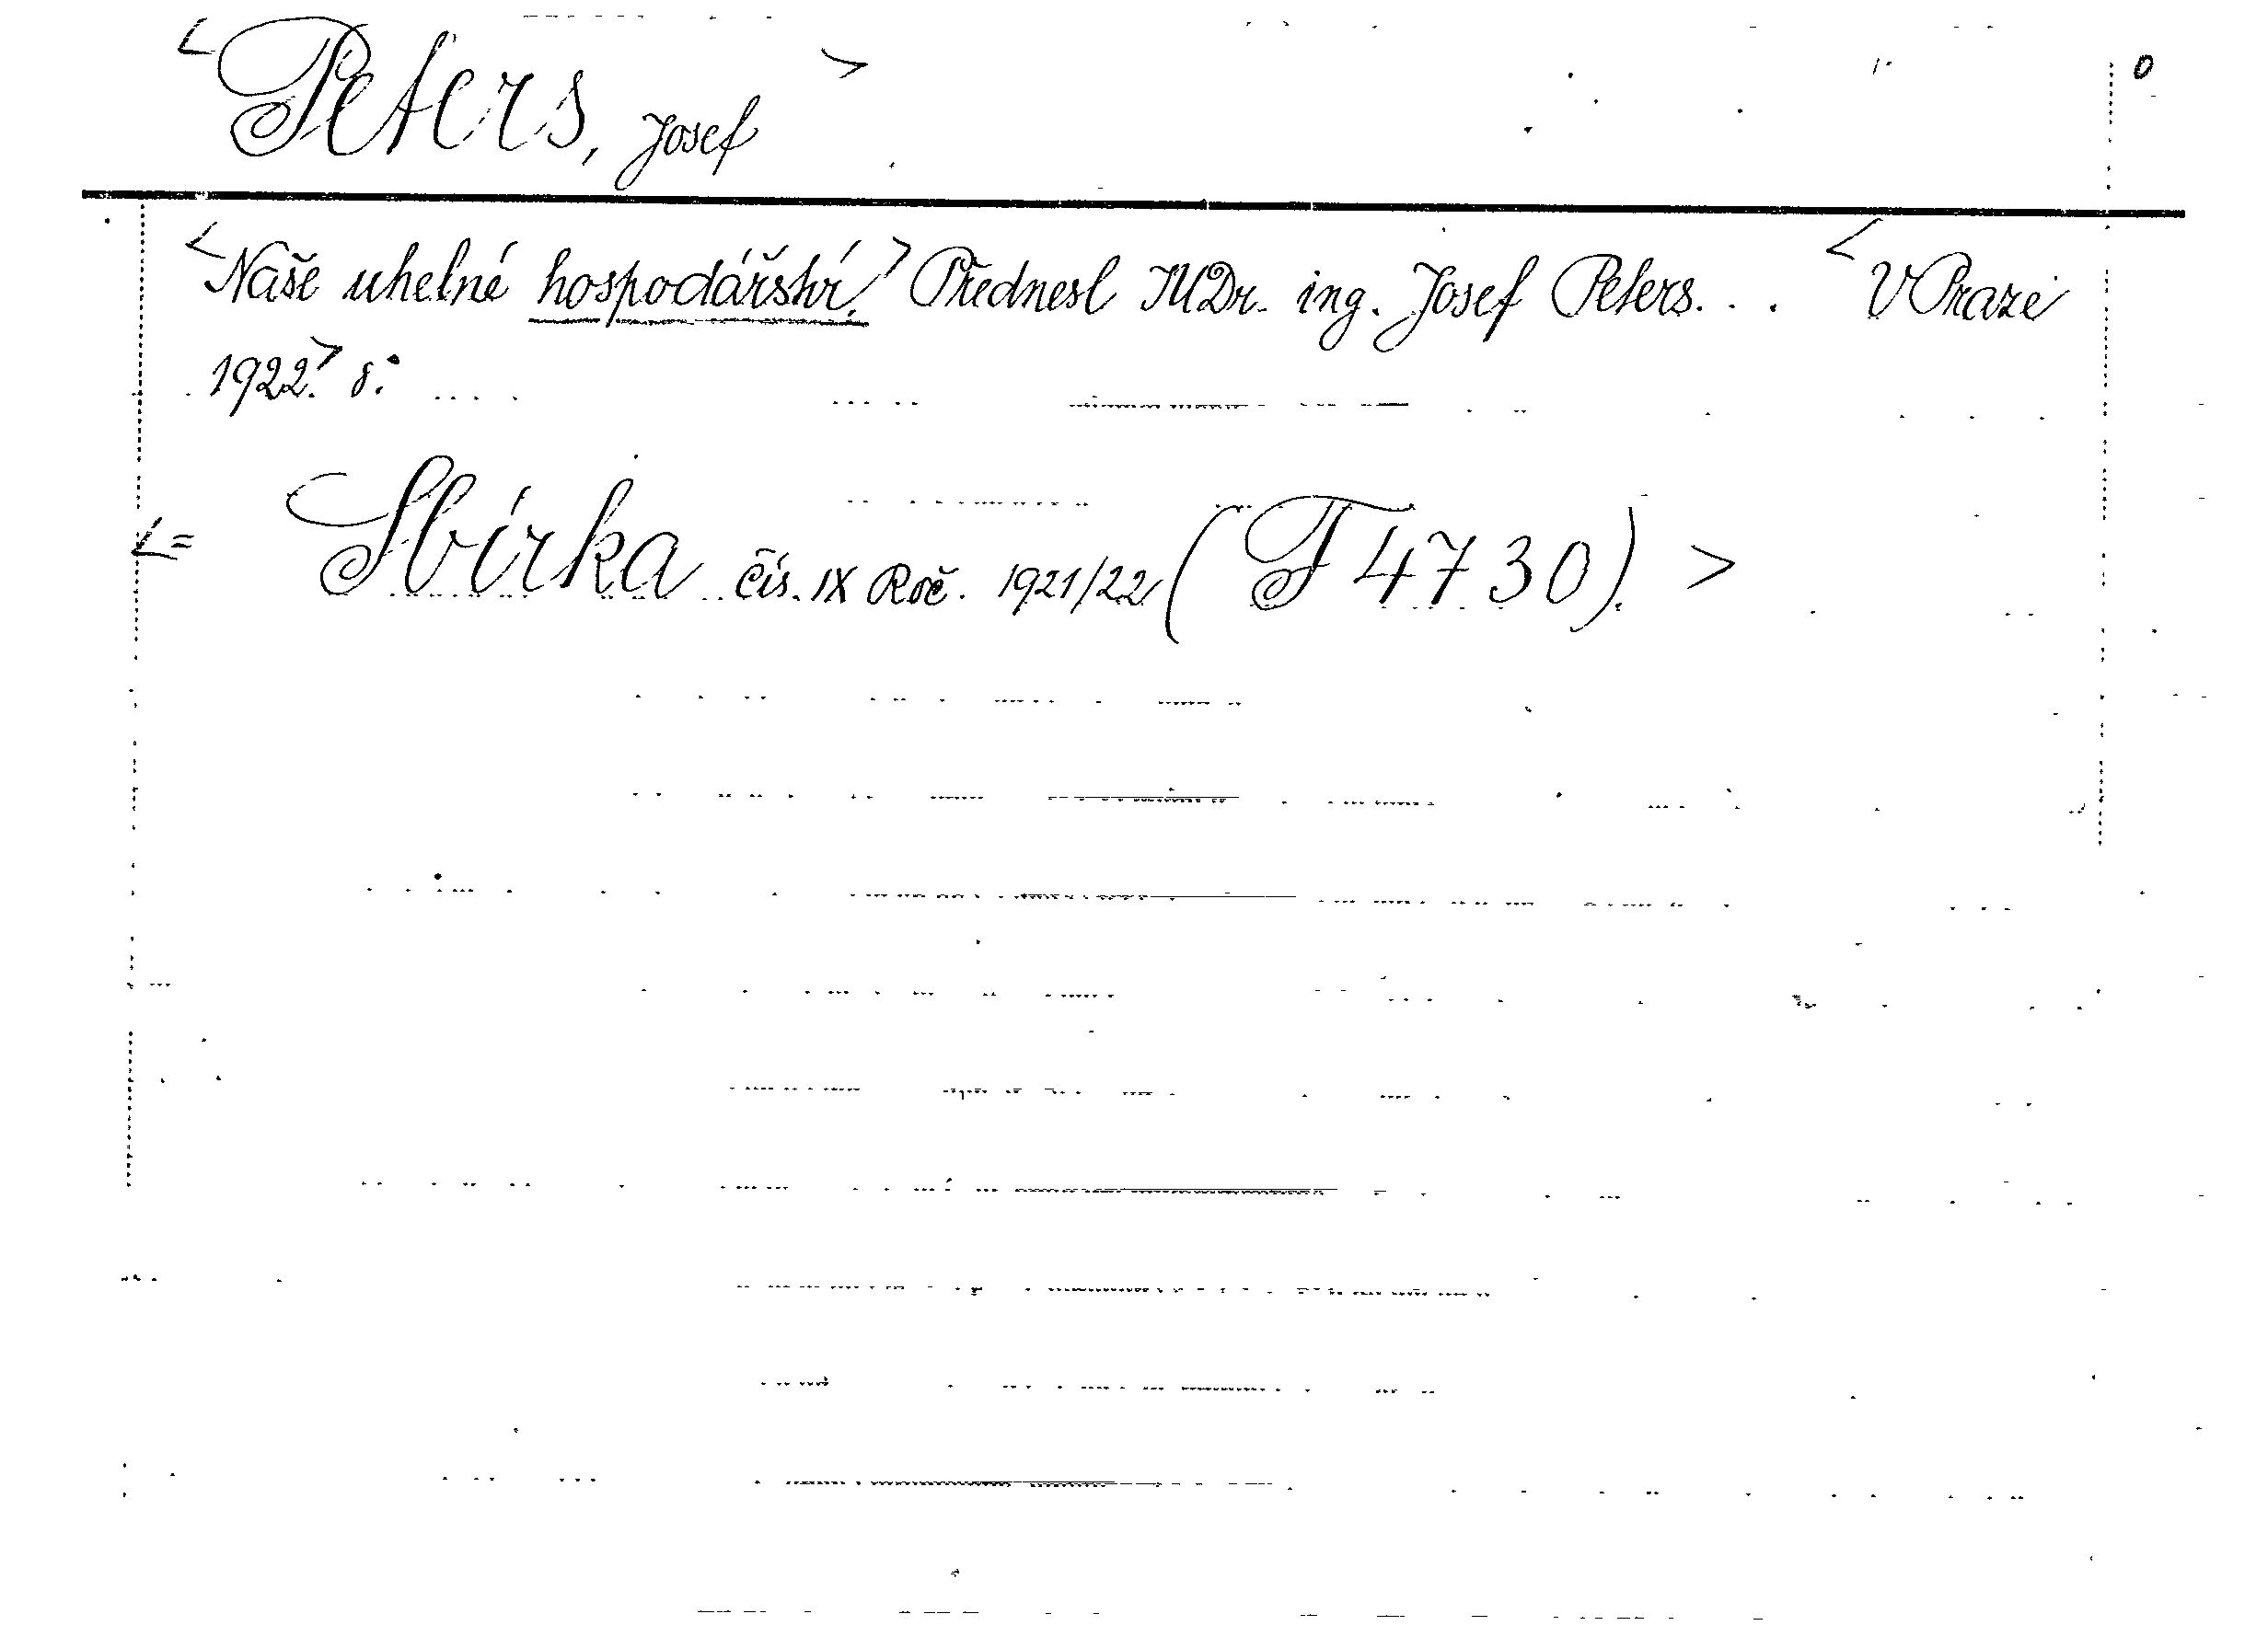 <Peters, Josef> 0
<Naše uhelné hospodářství.> Přednesl JUDr. ing. Josef Peters... <V Praze
1922.> 8.°
<= Sbírka čís. IX Roč. 1921/22 (T 4730). >